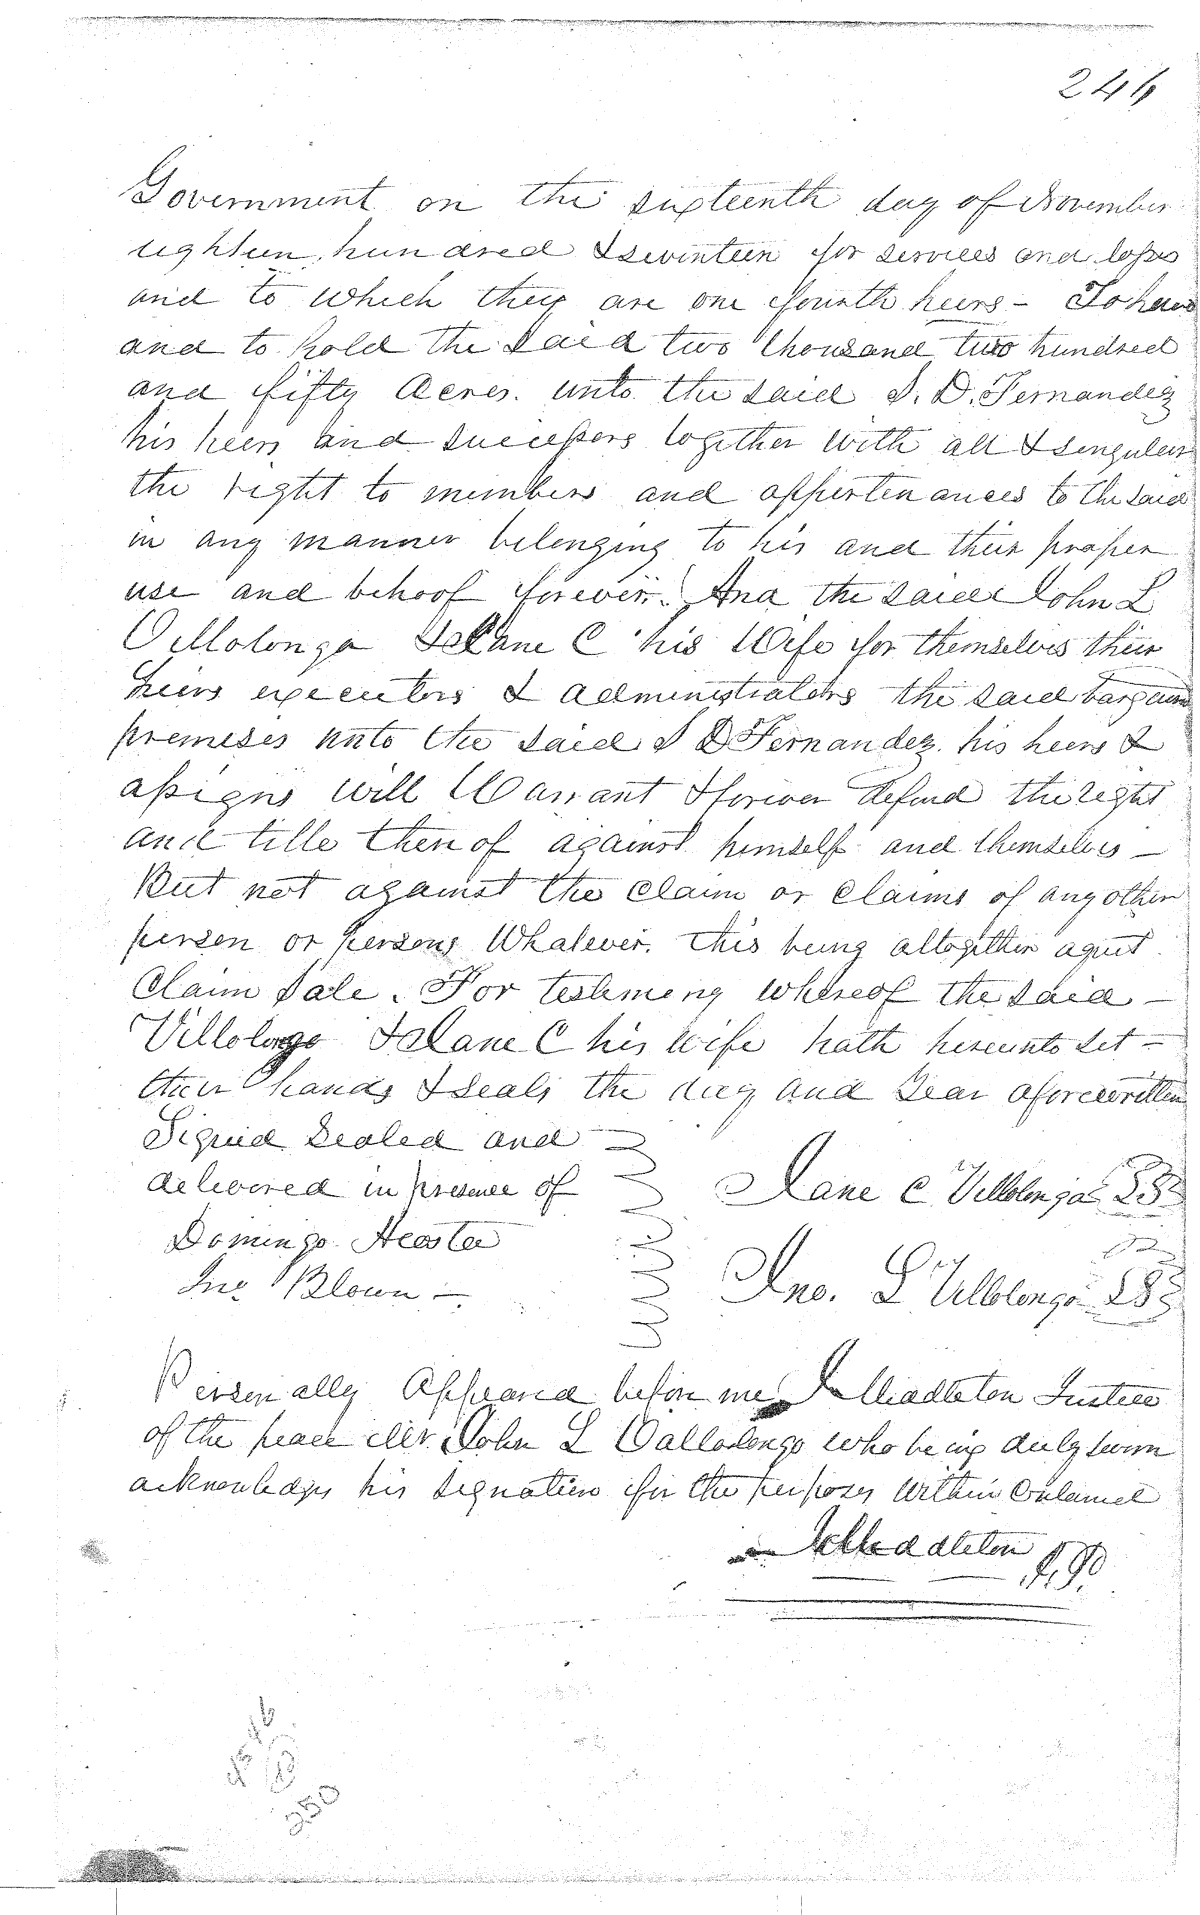 244
Government on the sixteenth day of November
eighteen hundred & seventeen for services and losses
and to which they are one fourth heirs - To have
and to hold the said two thousand two hundred
and fifty Acres. unto the said S. D. Fernandez
his heirs and successors together with all & singular
the right to members and appertenances to the said
in any manner belonging to his and their proper
use and behoof forever. And the said John L
Villolonga & Jane C his Wife for themselves their
heirs executors & administrators the said bargained
premises unto the said S D Fernandez his heirs &
assigns will Warrant & forever defend the right
and title thereof against himself and themselves -
But not against the claim or claims of any other
person or persons Whatever. this being altogether a quit
Claim Sale. For testimony whereof the said -
Villolongo & Jane C his wife hath hereunto set -
their hands & seals the day and Year aforewritten
Signed Sealed and
delivered in presence of
Jane C Villolonga
Domingo Acosta
Jno. Blown -
Jno. L Villolonga
Personally Appeared before me Middleton Justice
of the peace Mr. John L Vallolongo who being duly sworn
acknowledges his signature for the purposes within Contained
Middleton J.P.